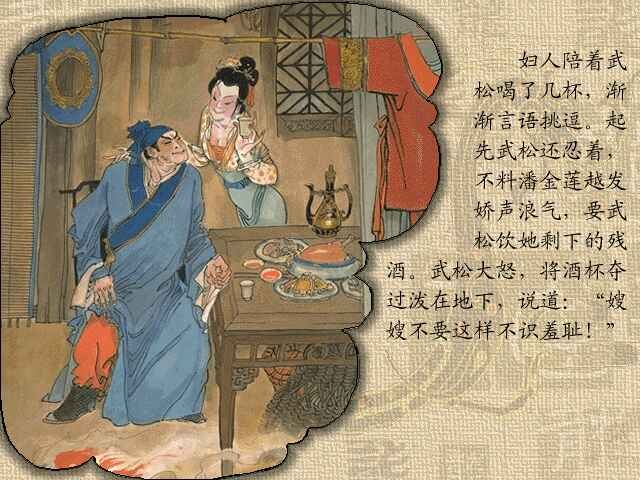 妇人陪着武
松喝了几杯，渐
渐言语挑逗。起
先武松还忍着，
不料潘金莲越发
娇声浪气，要武
松饮她剩下的残
酒。武松大怒，将酒杯夺
过泼在地下，说道：“嫂
嫂不要这样不识羞耻！”